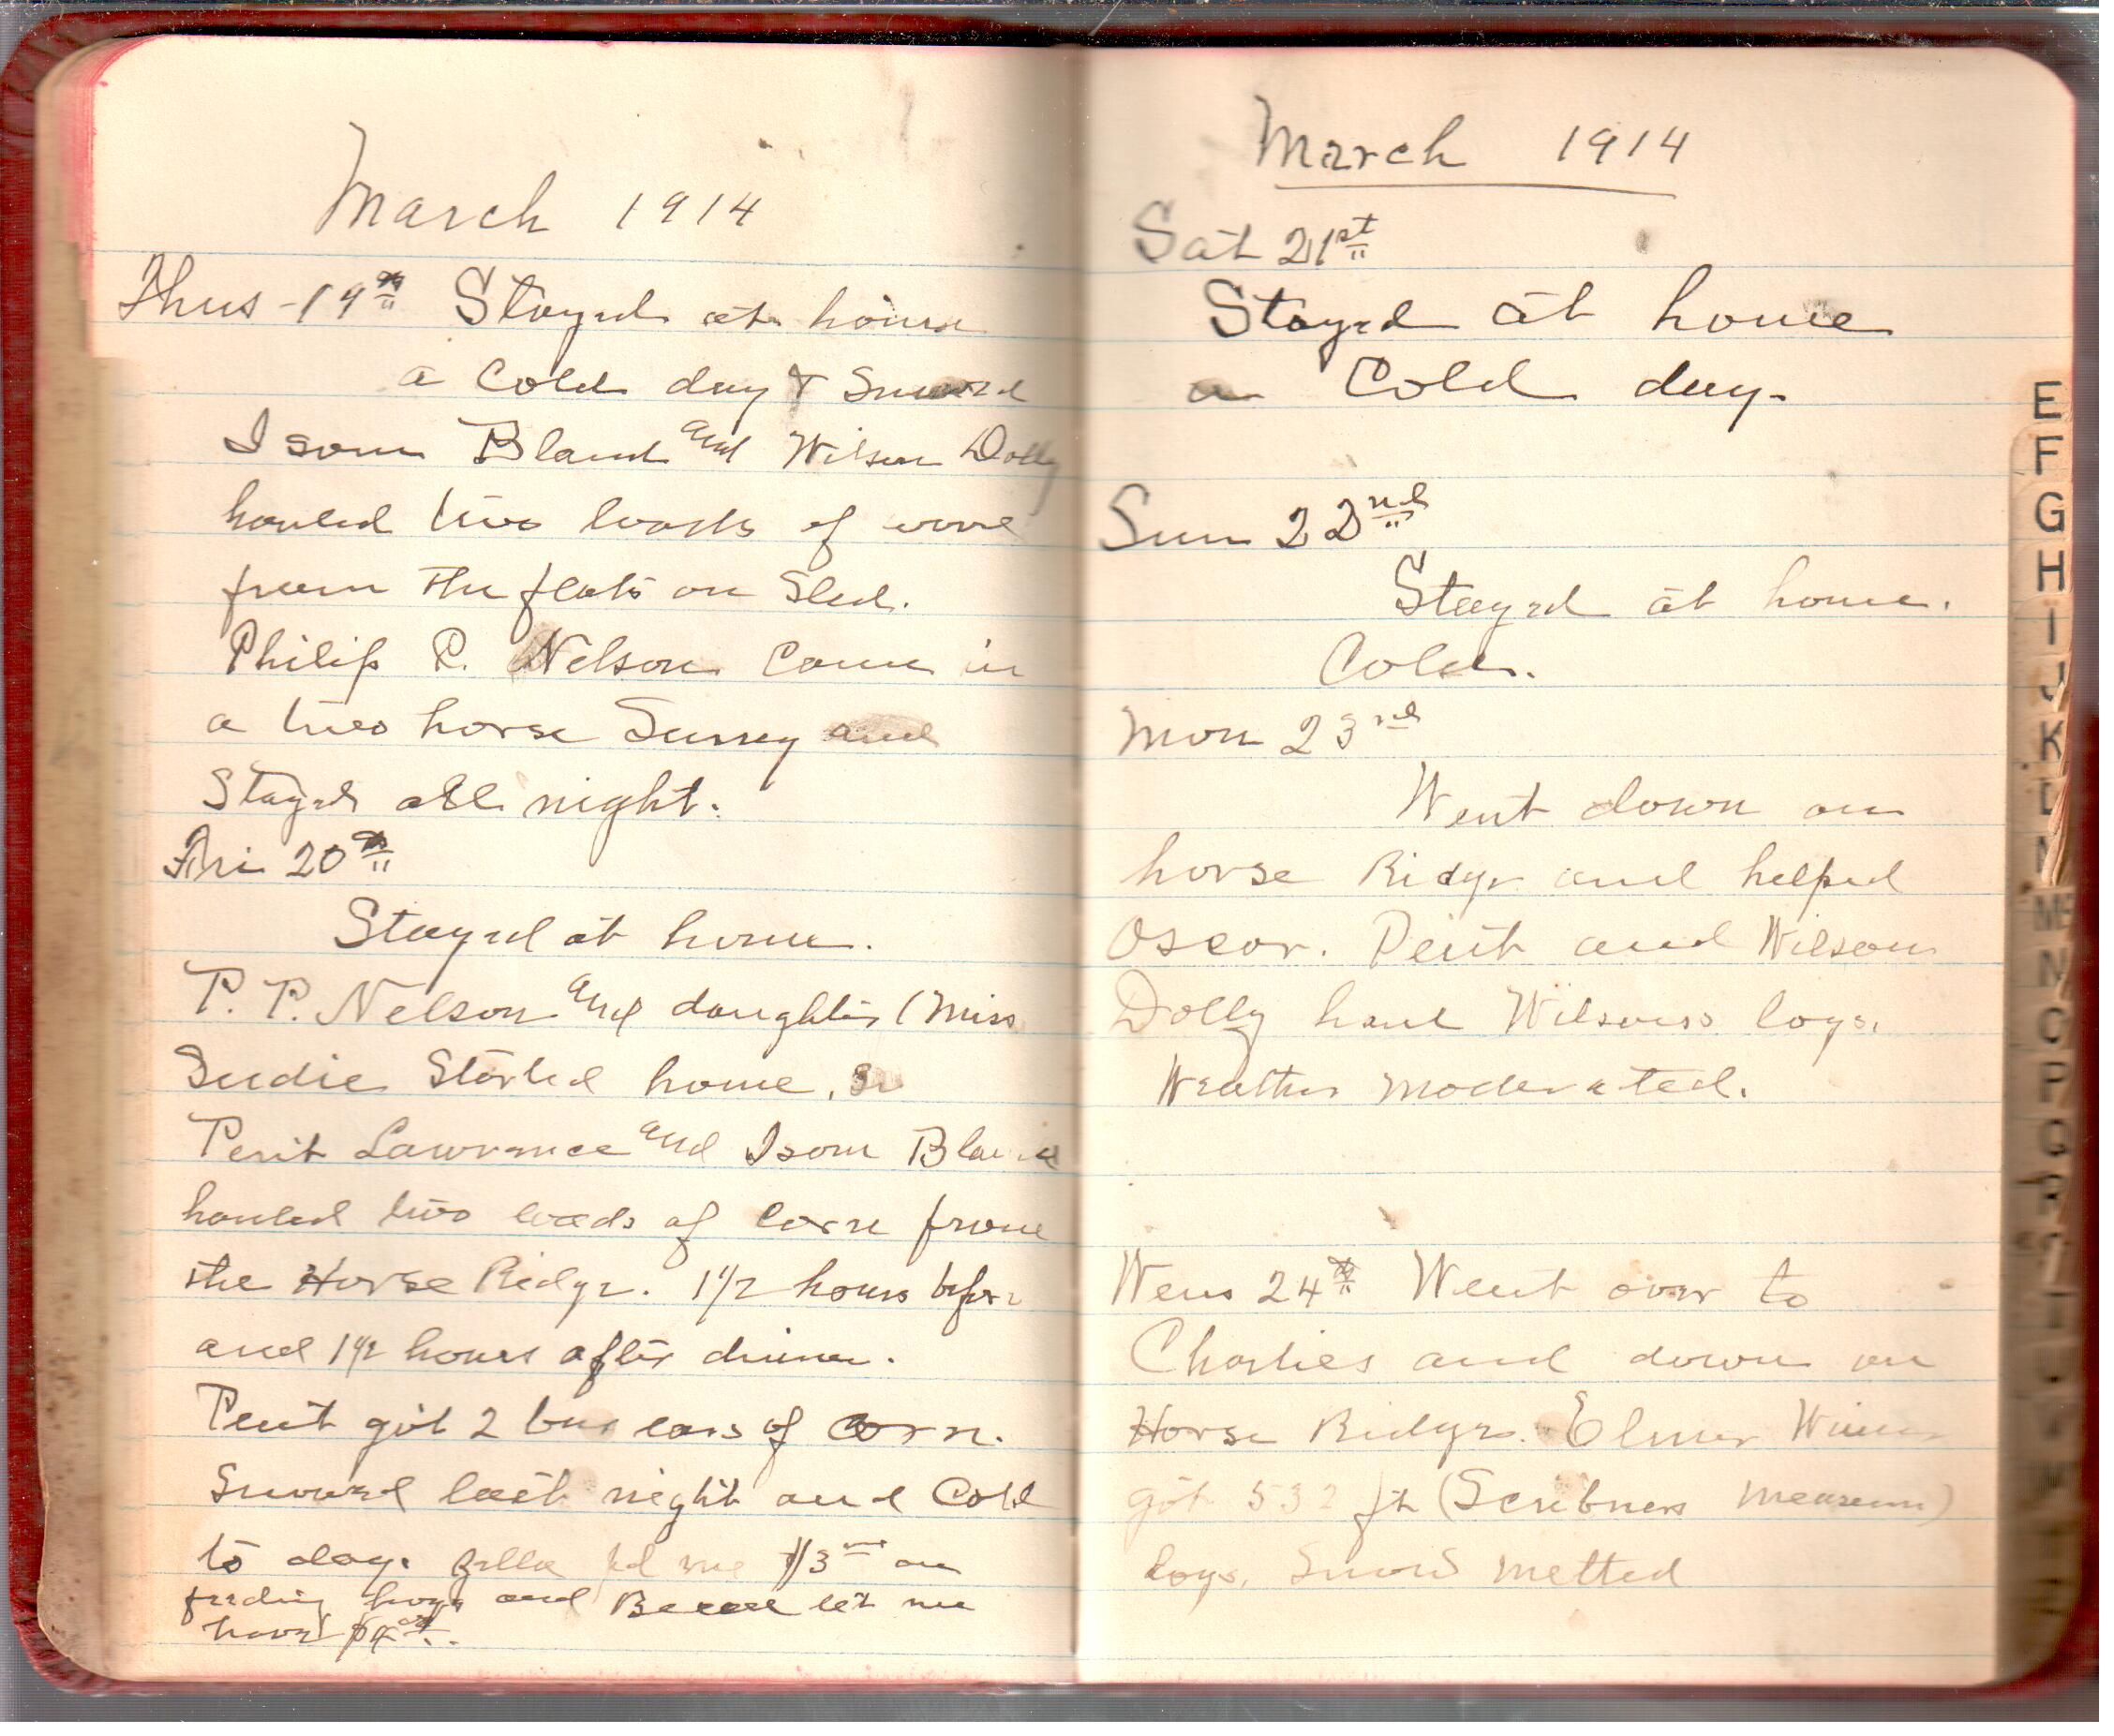 March 1914
Thus - 19th Stayed at home
a Cold day & Snowed
Isom Bland and Wilson Dolly
hauled two loads of
from the flats on Sled.
Philip P. Nelson Came in
a two horse Surrey and
Stayed all night.
Fri 20th
Stayed at home.
P. P. Nelson and daughter (Miss
Sudie Started home.
Perit Lawrance and Isom Bland
hauled two loads of Corn from
the Horse Ridge. 1 1/2 hours before
and 1 1/2 hours after dinner.
Perit got 2 bus ears of corn.
Snowed last night and Cold
to day. pd me $3 on
feeding hogs and let me
have
March 1914
Sat 21st
Stayed at home
a Cold day.
Sun 22nd
Stayed at home.
Cold.
Mon 23rd
Went down on
horse Ridge and helped
Oscar. Perit and Wilson
Dolly haul Wilsons logs.
Weather moderated.
Wens 24th Went over to
Charlies and down on
Horse Ridge. Elmer
got 532 ft (Scribners measure)
logs. Snow melted
E
F
G
H
I
J
K
L
M
N
O
P
Q
R